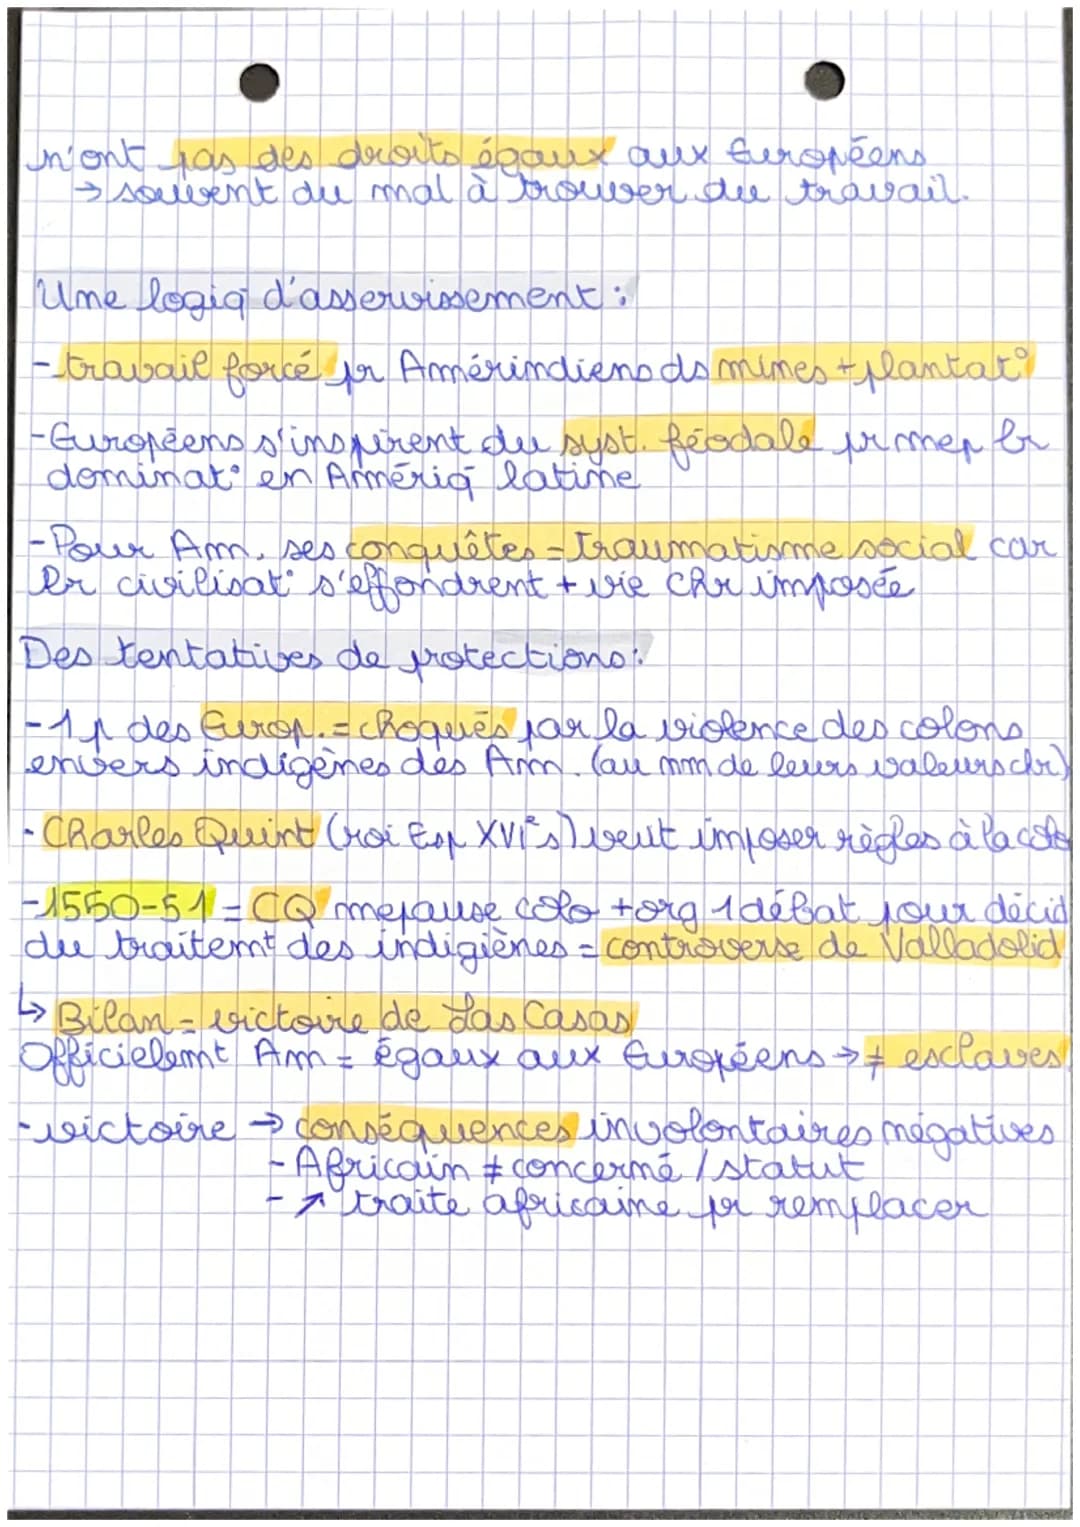 n'ont pas des droits égaux aux Européens
→ souvent du mal à trouver du travail.
Une logiq d'asservissement :
- travail forcé pr Amérindiens ds mines + plantat°
- Européens s'inspirent du syst. féodale pr mep lr
dominat° en Amériq latine
- Pour Am. ses conquêtes = traumatisme social car
lr civilisat° s'effondrent + vie chr imposée
Des tentatives de protections :
- 1 p des Europ. = choqués par la violence des colons
envers indigènes des Am. (au nm de leurs valeurs chr)
- Charles Quint (roi Esp XVIe s) veut imposer règles à la colo
- 1550-51 = CQ me pause colo + org 1 débat pour décid
du traitemt des indigiènes = controverse de Valladolid
↳ Bilan = victoire de Las Casas
Officielemt Am = égaux aux Européens → ≠ esclaves
- victoire → conséquences involontaires négatives
- Africain ≠ concerné / statut
- ↗ traite africaine pr remplacer